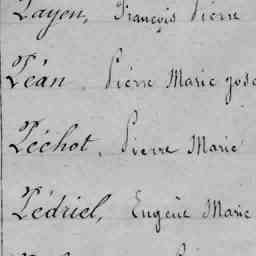 Payen, François Pierre
Péan, Pierre Marie Jose
Péchot, Pierre Marie
Pédriel, Eugène Marie